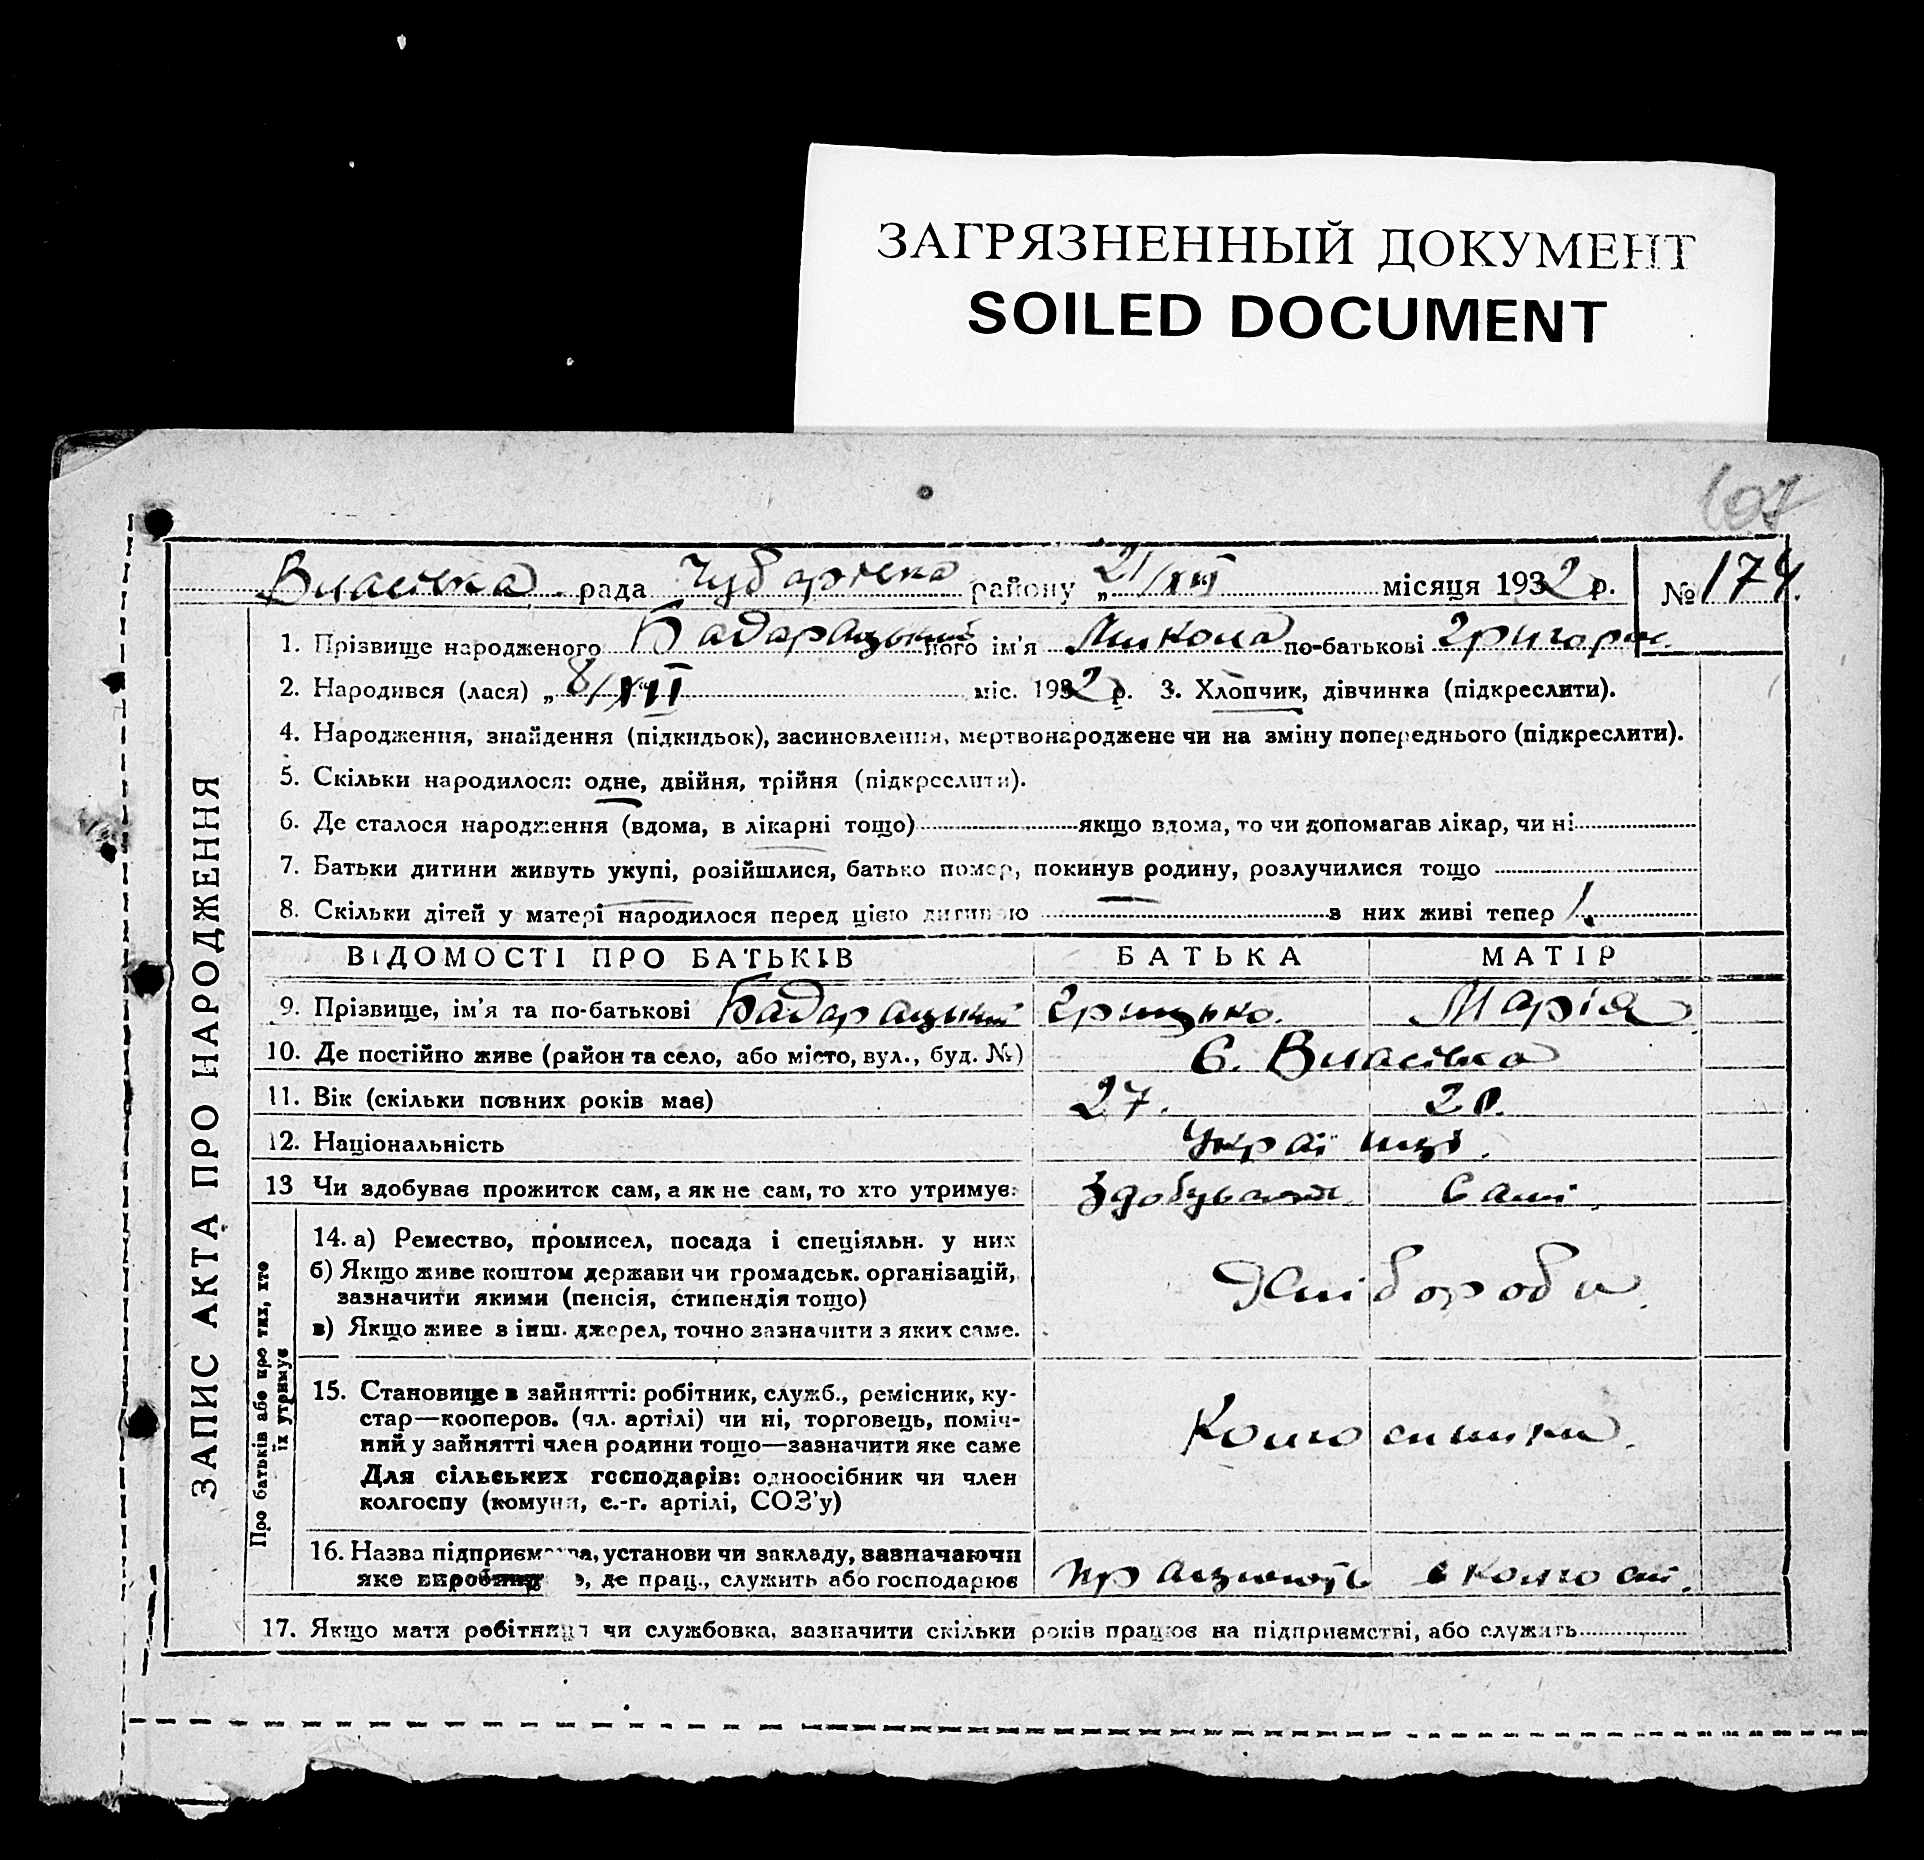 ЗАГРЯЗНЕННЫЙ ДОКУМЕНТ
SOILED DOCUMENT
107
Власівка рада Чубарівка району „21/XII місяця 1932 р. № 174.
1. Прізвище народженого Бадарацький його ім'я Микола по-батькові Григоров.
2. Народився (лася) „8/XII міс. 1932 р. 3. Хлопчик, дівчинка (підкреслити).
4. Народження, знайдення (підкидьок), засиновлення, мертвонароджене чи на зміну попереднього (підкреслити).
5. Скільки народилося: одне, двійня, трійня (підкреслити).
6. Де сталося народження (вдома, в лікарні тощо) якщо вдома, то чи допомагав лікар, чи ні
7. Батьки дитини живуть укупі, розійшлися, батько помер, покинув родину, розлучилися тощо
8. Скільки дітей у матері народилося перед цією дитиною — в них живі тепер 1.
ЗАПИС АКТА ПРО НАРОДЖЕННЯ
ВІДОМОСТІ ПРО БАТЬКІВ БАТЬКА МАТІР
9. Прізвище, ім'я та по-батькові Бадарацький Грицько. Марія
10. Де постійно живе (район та село, або місто, вул., буд. №) С. Власівка
11. Вік (скільки повних років має) 27. 20.
12. Національність Украї нці.
13 Чи здобуває прожиток сам, а як не сам, то хто утримує: Здобувають Самі
Про батьків або про тих, хто
їх утримує
14. а) Ремество, промисел, посада і спеціяльн. у них
б) Якщо живе коштом держави чи громадськ. організацій,
зазначити якими (пенсія, стипендія тощо)
в) Якщо живе в інш. джерел, точно зазначити з яких саме.
Хлібороби.
15. Становище в зайнятті: робітник, служб., ремісник, ку-
стар—кооперов. (чл. артілі) чи ні, торговець, поміч-
ний у зайнятті член родини тощо—зазначити яке саме
Для сільських господарів: одноосібник чи член
колгоспу (комуни, с.-г. артілі, СОЗ'у)
16. Назва підприємства, установи чи закладу, зазначаючи
яке виробництво, де прац., служить або господарює
працюють в
17. Якщо мати робітниця чи службовка, зазначити скільки років працює на підприємстві, або служить